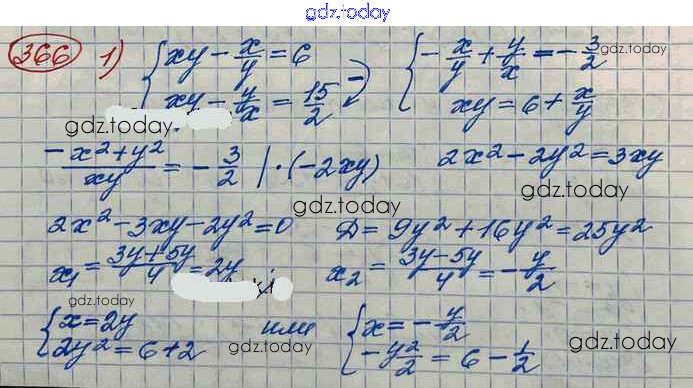 gdz.today
366 1) { xy - x/y = 6 { -x/y + y/x = -3/2
gdz.today
xy - y/x = 15/2 xy = 6 + x/y
gdz.today
(-x² + y²)/xy = -3/2 | · (-2xy) 2x² - 2y² = 3xy
gdz.today
gdz.today
2x² - 3xy - 2y² = 0 Д = 9y² + 16y² = 25y²
x₁ = (3y + 5y)/4 = 2y x₂ = (3y - 5y)/4 = -y/2
gdz.today
{ x = 2y или { x = -y/2
2y² = 6 + 2 -y²/2 = 6 - 1/2
gdz.today
gdz.today